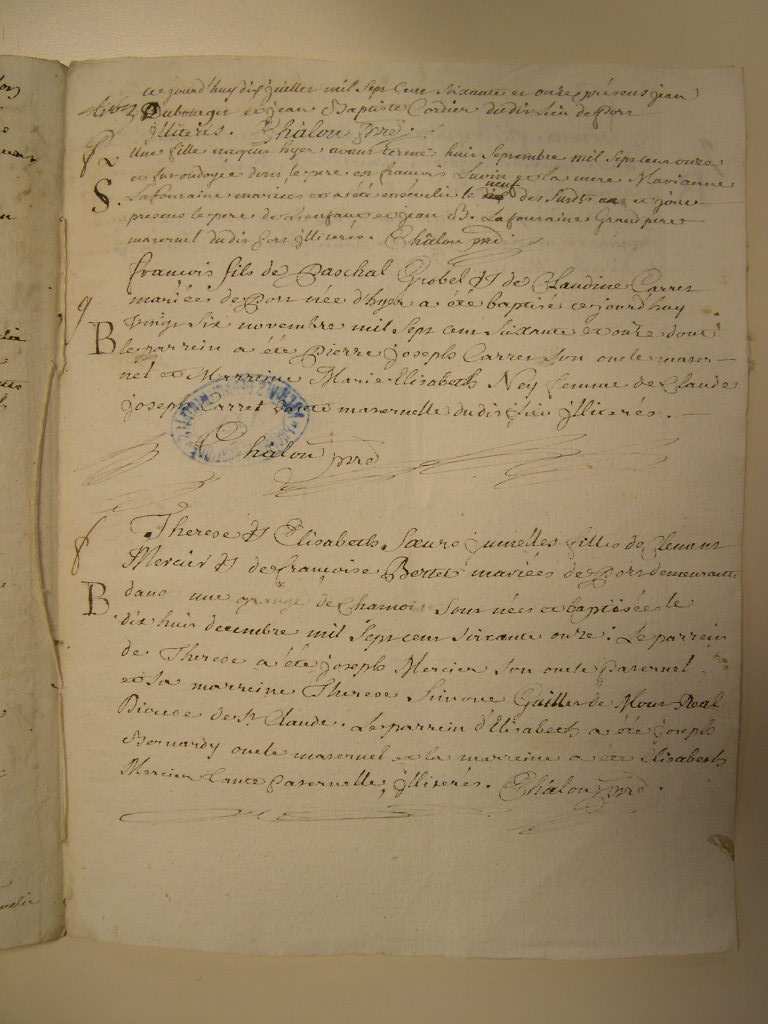 cejourd'huy dix juillet mil sept cent soixante et onze présens jean
Dubourgit et jean Baptiste Cordier dudit lieu de Fort
illiterés. Châlon prêt.
f
S.
Une fille naquit hyer avant terme huit Septembre mil sept cent onze
et fut ondoyée dont le pere est francois Luvin et la mere Marianne
La fontaine mariées et a été ensevelie le neuf des susdits an et jour
présens le pere de l'enfant et jean B. La fontaine Grand pere
maternel dudit fort illiterés. Châlon prêt
g
B
francois fils de Paschal Grobel & de Claudine Carrez
mariées de Fort née d'hyer a été baptisé cejourd'huy
vingt six novembre mil sept cent soixante et onze dont
le parrein a été Pierre joseph Carrez son oncle mater-
nel et Marreine Marie Elisabeth Ney femme de Claude
joseph Carret tante maternelle dudit lieu illiterés.
Châlon prêt
f
B
Therese & Elisabeth Soeurs jumelles filles de Clement
Mercier & de françoise Bertet mariées de Fort demeurants
dans une grange de Chamois sont nées et baptisées le
dix huit decembre mil sept cent soixante onze. Le parrein
de Therese a été joseph Mercier son oncle Paternel
et sa marreine Therese Simone Guiller de Mont Real
Diocese de St Claude. Le parrein d'Elisabeth a été joseph
Bernardy oncle maternel et la marreine a été Elisabeth
Mercier tante Paternelle, illiterés. Châlon prêt.